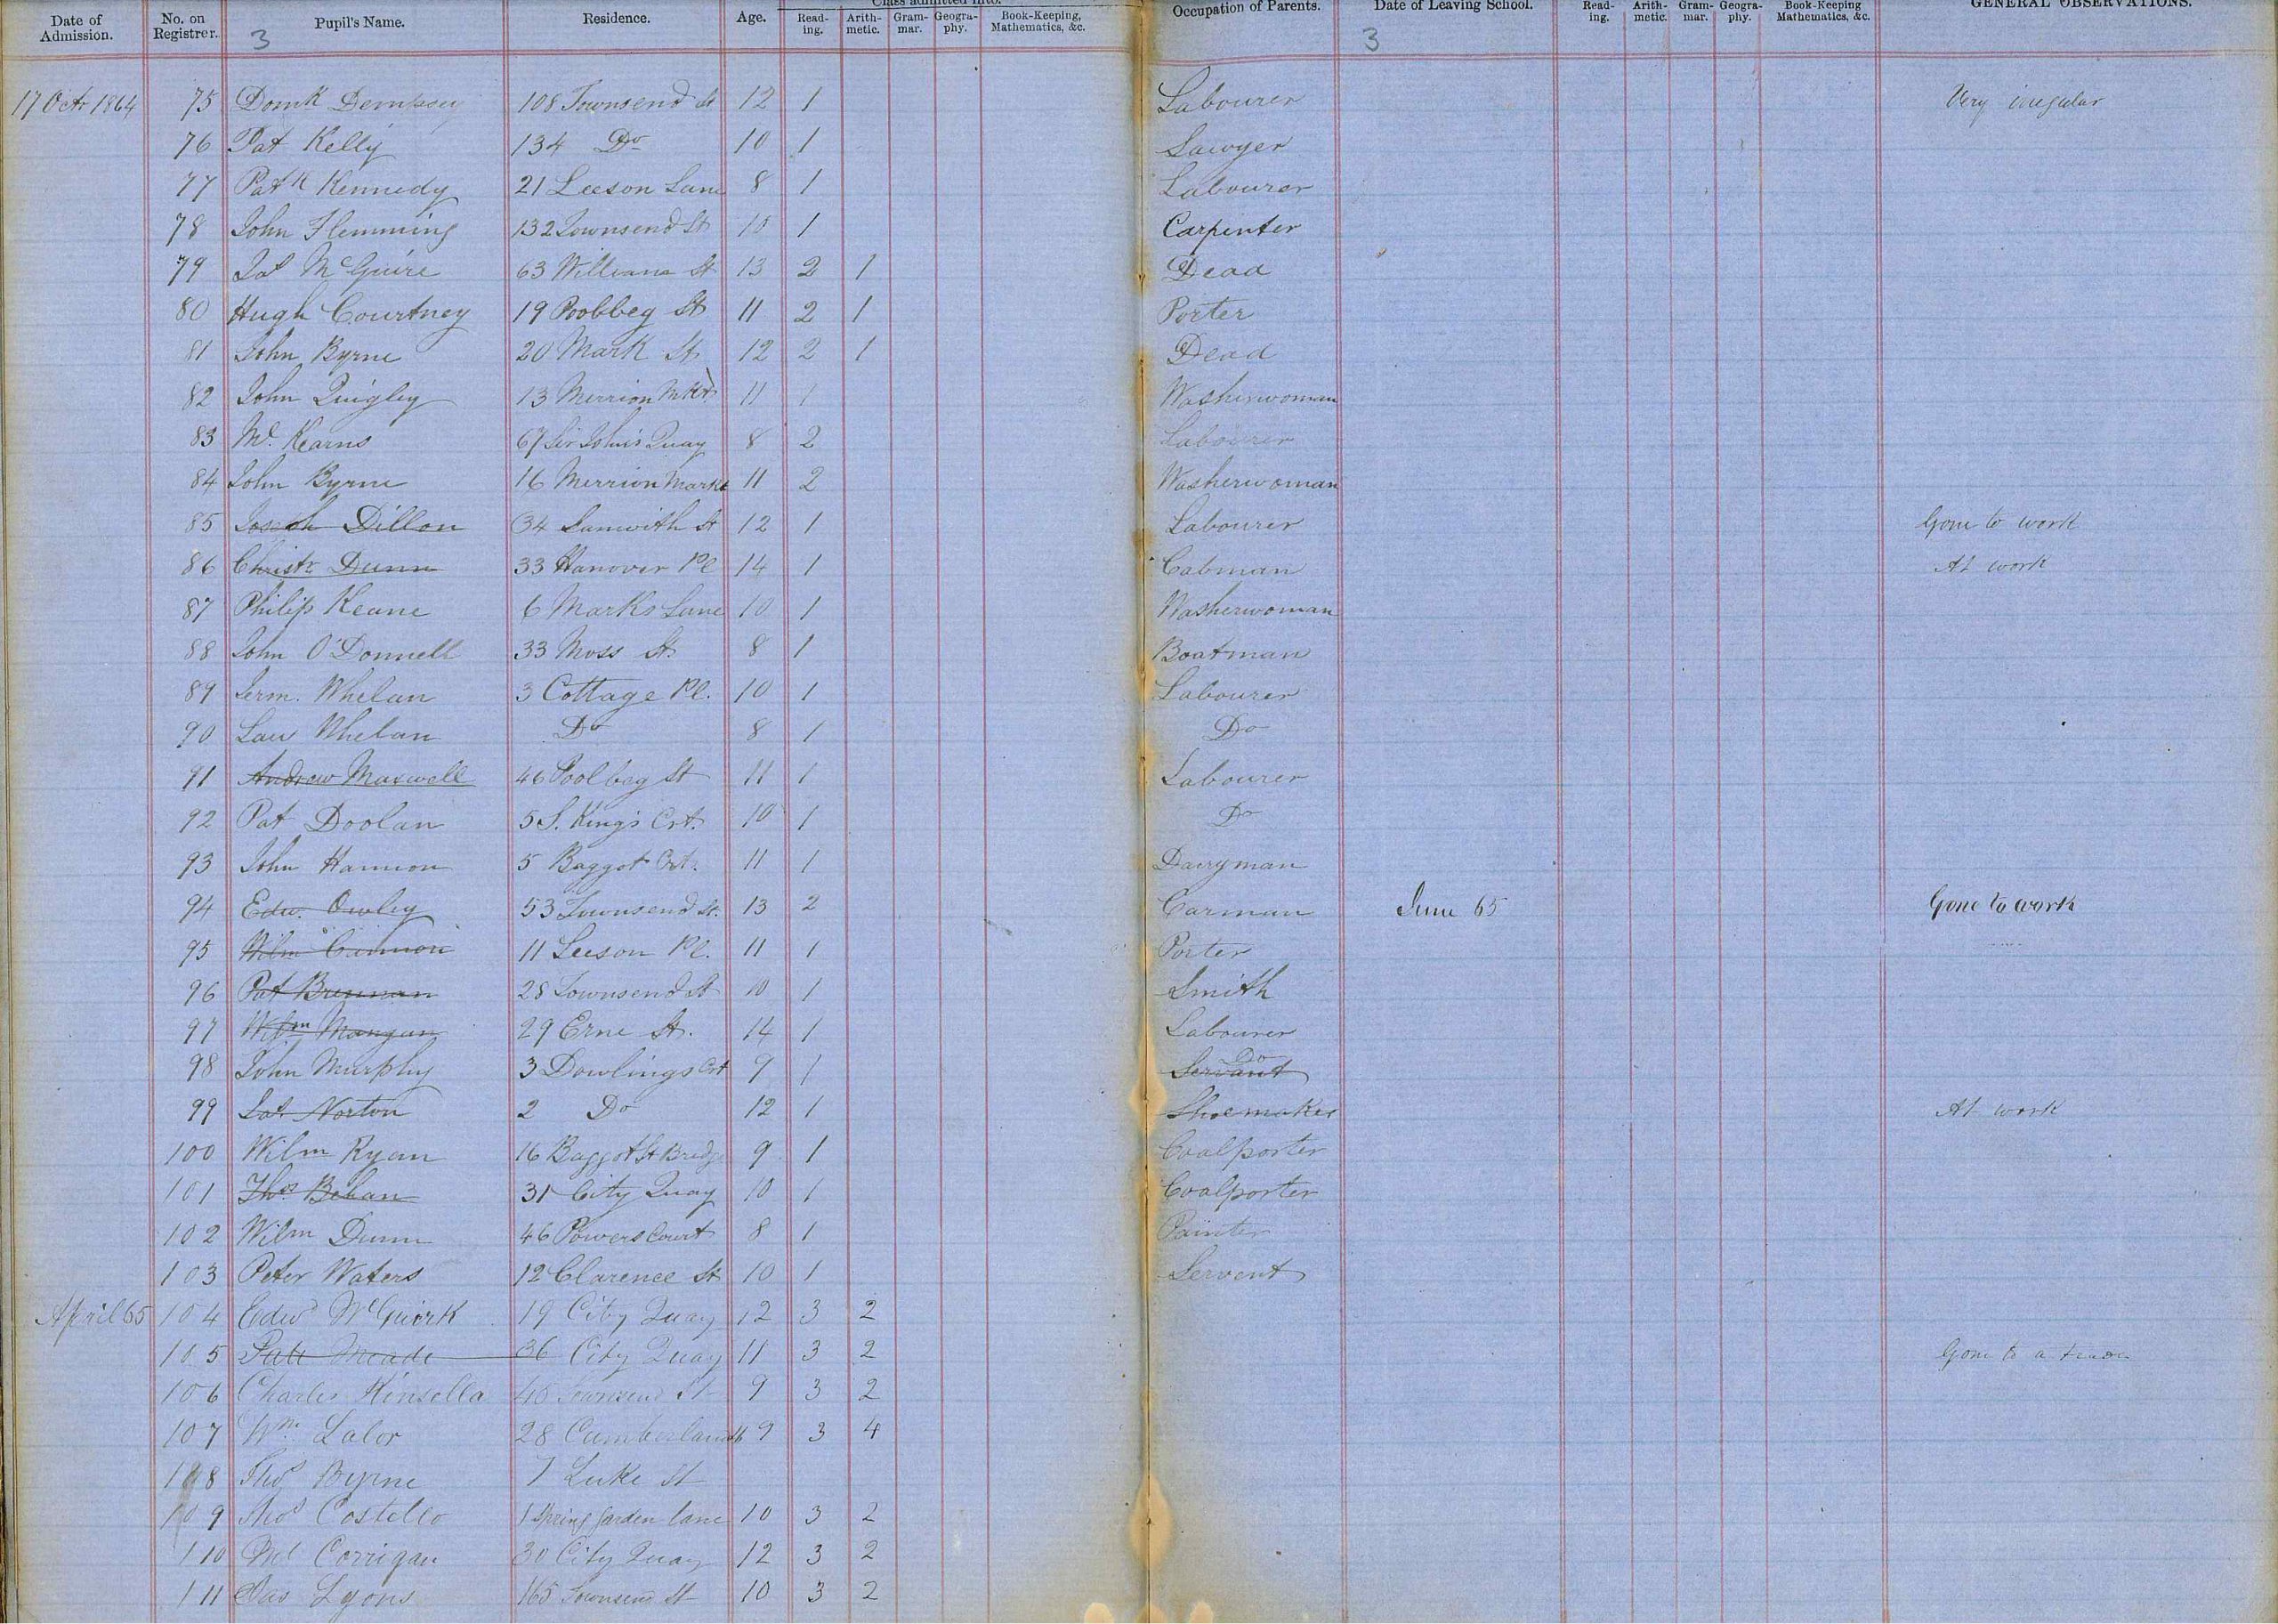 Date of Admission. No. on Registrer. Pupil's Name. Residence. Age. Class admitted into. Read-ing. Arith-metic. Gram-mar. Geogra-phy. Book-Keeping, Mathematics, &c. Occupation of Parents. Date of Leaving School. Read-ing. Arith-metic. Gram-mar. Geogra-phy. Book-Keeping Mathematics, &c. GENERAL OBSERVATIONS.
3 3
17 Octr 1864 75 Domk Dempsey 108 Townsend St 12 1 Labourer Very irregular
76 Pat Kelly 134 Do 10 1 Sawyer
77 Patk Kennedy 21 Leeson Lane 8 1 Labourer
78 John Flemming 132 Townsend St 10 1 Carpinter
79 Jas McGuire 63 William St 13 2 1 Dead
80 Hugh Courtney 19 Poobbeg St 11 2 1 Porter
81 John Byrne 20 Mark St 12 2 1 Dead
82 John Quigley 13 Merrion Mkt 11 1 Washerwoman
83 Ml. Kearns 67 Sir John's Quay 8 2 Labourer
84 John Byrne 16 Merrion Markt 11 2 Washerwoman
85 Joseph Dillon 34 Sanwith St 12 1 Labourer Gone to work
86 Christr Dunn 33 Hanover Pl 14 1 Cabman At work
87 Philip Keane 6 Marks Lane 10 1 Washerwoman
88 John O'Donnell 33 Moss St. 8 1 Boatman
89 Jerm. Whelan 3 Cottage Pl. 10 1 Labourer
90 Law Whelan Do 8 1 Do
91 Andrew Maxwell 46 Poolbeg St 11 1 Labourer
92 Pat Doolan 5 S. King's Crt. 10 1 Do
93 John Hannon 5 Baggot Crt. 11 1 Dairyman
94 Edw. Owley 53 Townsend St. 13 2 Carman June 65 Gone to work
95 Wilm Cannon 11 Leeson Pl. 11 1 Porter
96 Pat Brennan 28 Townsend St 10 1 Smith
97 Wilm Mangan 29 Erne St. 14 1 Labourer
98 John Murphy 3 Dowlings Crt 9 1 Servant Do
99 Jas Norton 2 Do 12 1 Shoemaker At work
100 Wilm Ryan 16 Baggot St Bridge 9 1 Coalporter
101 Thos Behan 31 City Quay 10 1 Coalporter
102 Wilm Dunn 46 Powers Court 8 1 Painter
103 Peter Waters 12 Clarence St 10 1 Servent
April 65 104 Edwd McGuirk 19 City Quay 12 3 2
105 Patt Meade 36 City Quay 11 3 2 Gone to a
106 Charles Kinsella 45 Townsend St 9 3 2
107 Wm Lalor 28 Cumberland St 9 3 4
108 Thos Byrne 7 Luke St
109 Thos Costello 1 Spring Garden lane 10 3 2
110 Ml Corrigan 30 City Quay 12 3 2
111 Jas Lyons 165 Townsend St 10 3 2